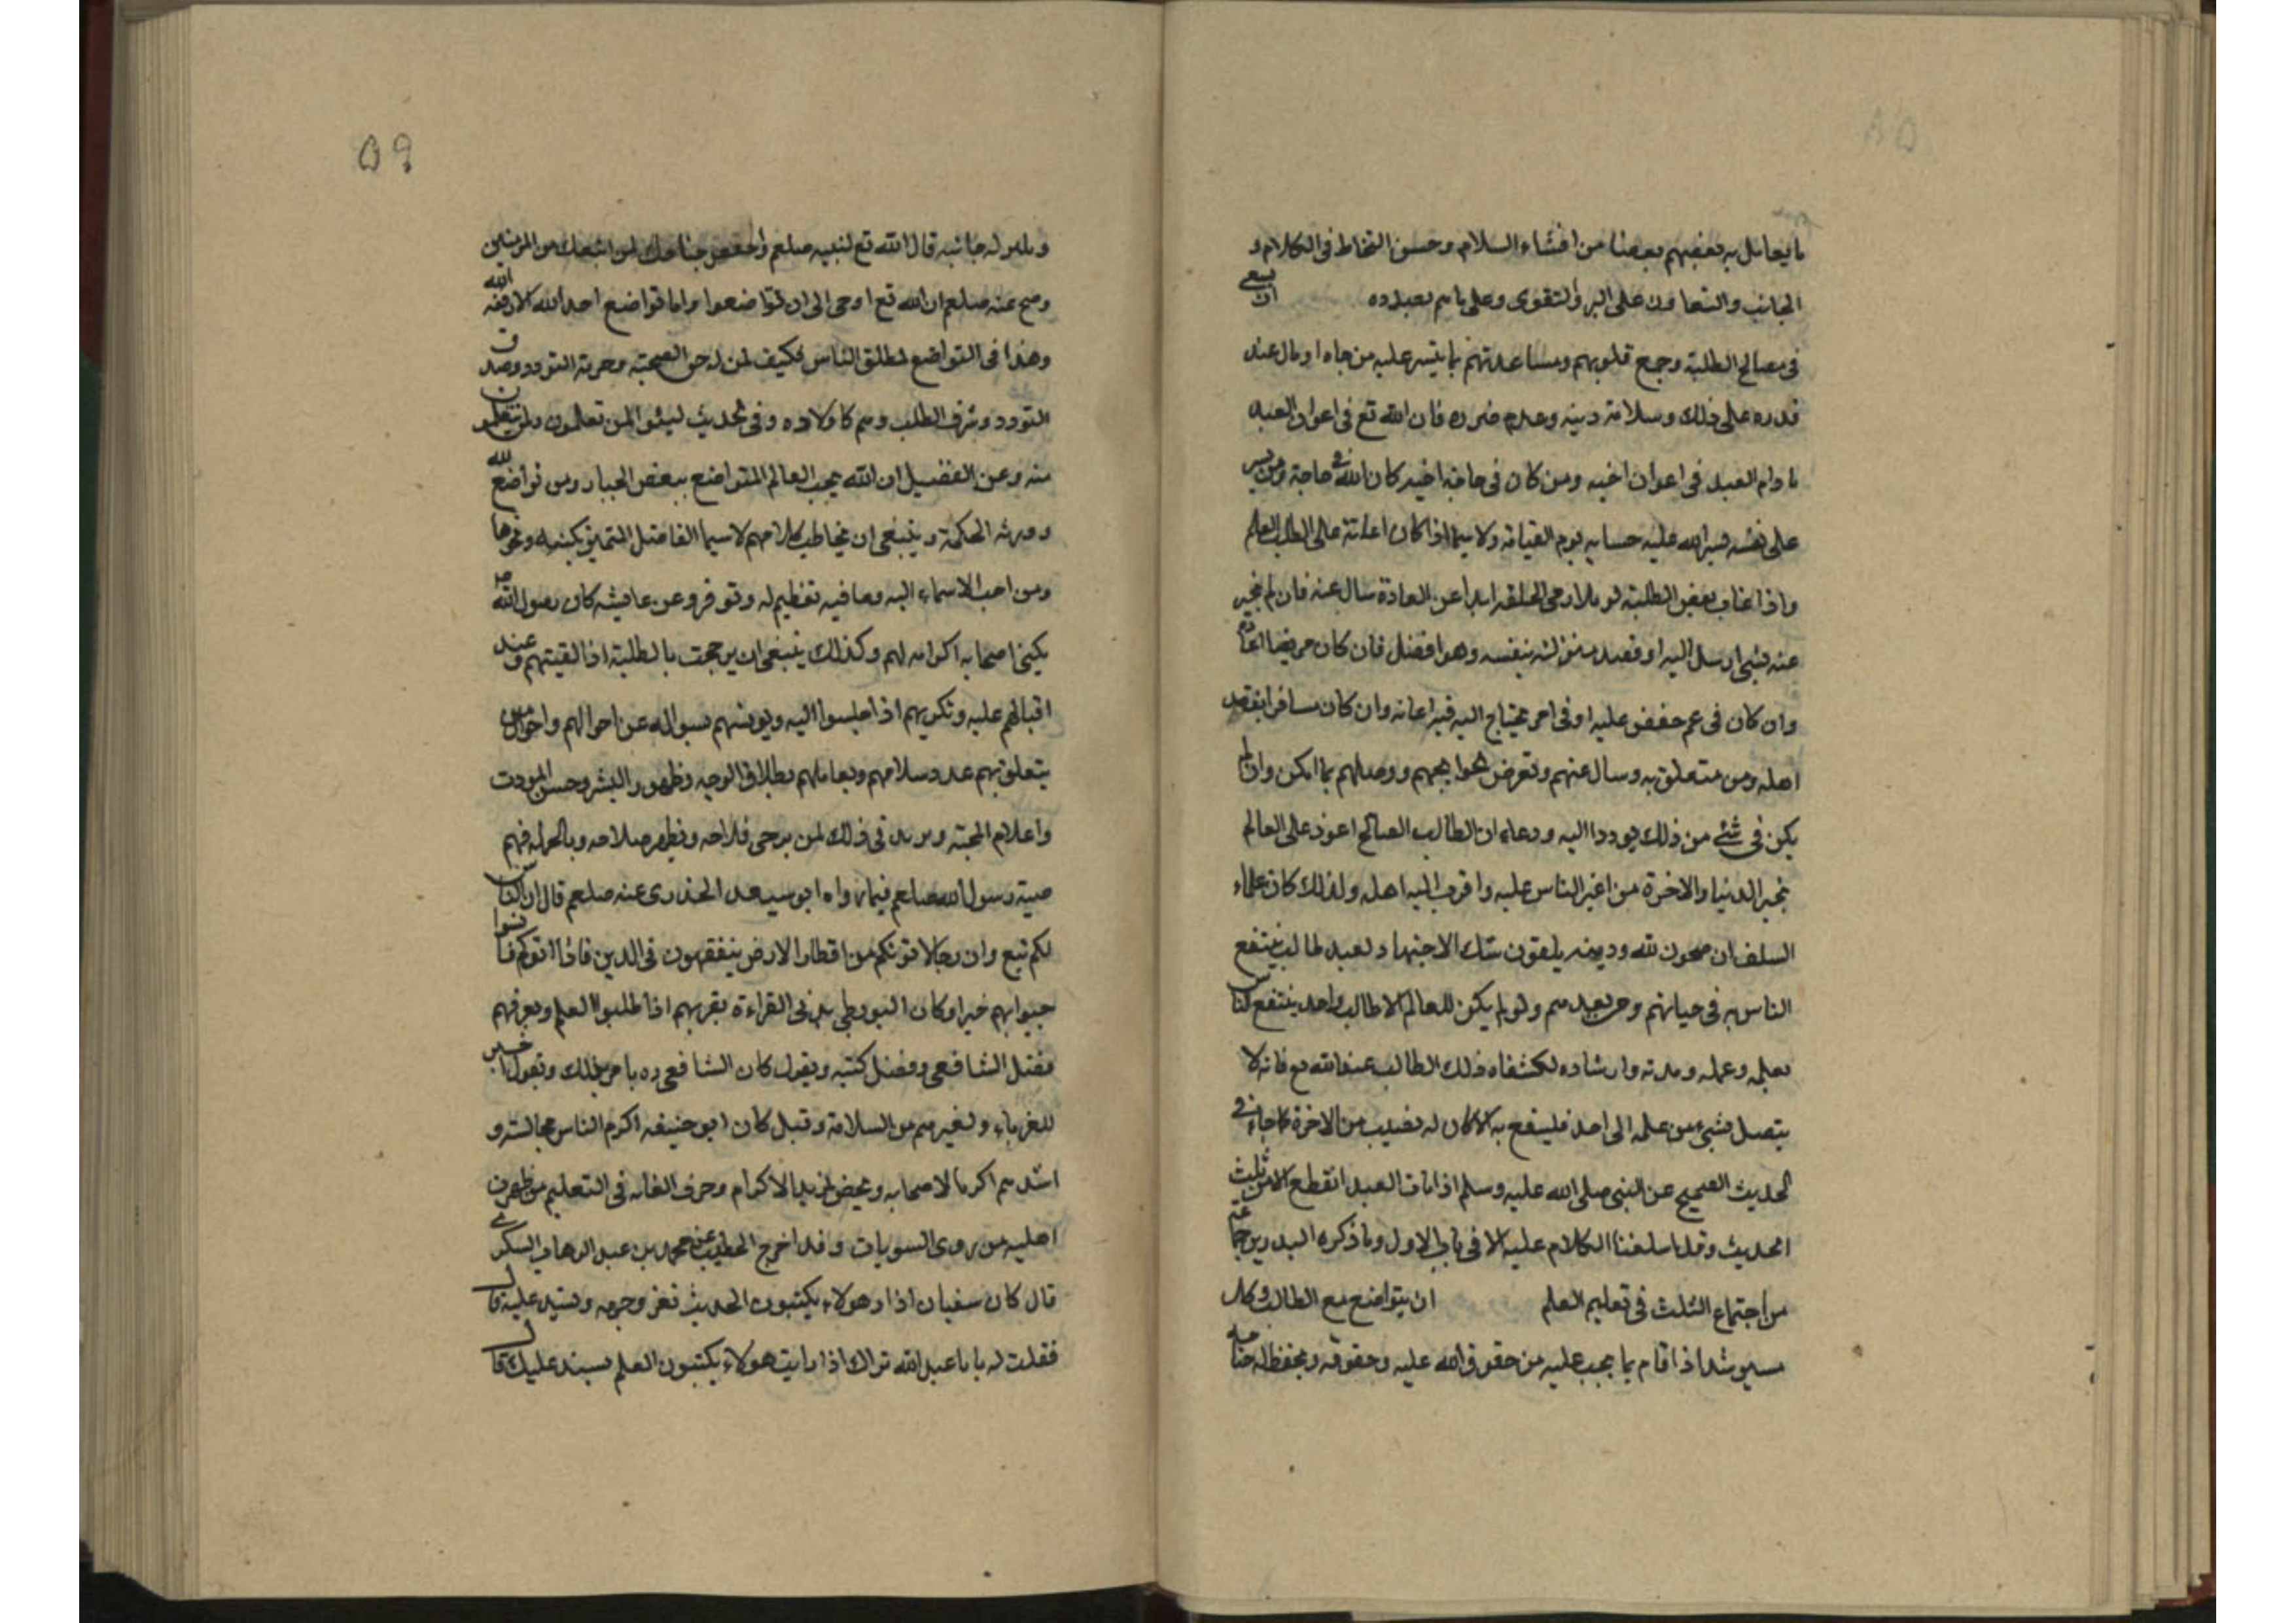 ٥٨
ما يعامل به بعضهم بعضا من افشاء السلام وحسن التخاط فى الكلام و
الجانب والتعاون على البر والتقوى وعلى ما هم بصدده ان يسعى
فى مصالح الطلبة وجمع قلوبهم ومساعدتهم بما يتيسر عليه من جاه او مال عند
قدره على ذلك وسلامة دينه وعدم ضروره فان الله تع فى اعوان العبد
ما دام العبد فى اعوان اخيه ومن كان فى حاجة اخيه كان الله فى حاجة ومن يسر
على نفسه يسر الله عليه حسابه يوم القيامة ولا سيما اذا كان اعانة على الطلب العلم
واذا غاب بعض الطلبة او ملازمى الحلقة زايدا عن العادة سال عنه فان لم يخبر
عنه بشى ارسل اليه او قصد منزلته بنفسه وهو افضل فان كان مريضا عاده
وان كان فى غم خفض عليه او فى امر يحتاج اليه فيه اعانه وان كان مسافرا يفقد
اهله ومن متعلق به وسال عنهم وتعرض لحوايجهم ووصلهم بما امكن وان لم
يكن فى شئ من ذلك تودد اليه ودعا له ان الطالب الصالح اعود على العالم
بخير الدنيا والاخرة من اغير الناس عليه واقرب اليه اهله ولذلك كان علماء
السلف ان صحون لله ودينه يلقون شبك الاجتهاد لصيد طالب ينتفع
الناس به فى حياتهم ومن بعدهم ولو لم يكن للعالم الا طالب واحد ينتفع الناس
بعلمه وعمله ومدته وارشاده لكفاه ذلك الطالب عند الله تع فانه لا
يتصل بشئ من علمه الى احد فلينتفع به الا كان له نصيب من الاخرة كما جاء فى
الحديث الصحيح عن النبى صلى الله عليه وسلم اذا مات العبد انقطع الا من ثلث
الحديث وقد اسلفنا الكلام عليه الا فى باب الاول وما ذكره البدر بن جماعة
من اجتماع الثلث فى تعليم العلم ان يتواضع مع الطالب وكل
مسترشد اذا قام بما يجب عليه من حقوق الله عليه وحقوقه ويخفض له جناحه
٥٩
ويلين له جانبه قال الله تع لنبيه صلعم واخفض جناحك لمن اتبعك من المومنين
وصح عنه صلعم ان الله تع اوحى الى ان تواضعوا واما تواضع احد لله الا رفعه الله
وهذا فى التواضع لمطلق الناس فكيف لمن له حق الصحبة وحرمة التودد وصدق
التودد وشرف الطلب وهم كاولاده وفى الحديث لينوا لمن تعلمون ولمن يتعلمون
منه وعن الفضيل ان الله يحب العالم المتواضع ببغض الجبار ومن تواضع لله
وورثه الحكمة وينبغى ان يخاطب كلا منهم لا سيما الفاضل المتميز بكنيته ونحوها
ومن احب الاسماء اليه وما فيه تعظيم له وتوقر وعن عايشه كان رسول الله صلعم
يكنى اصحابه اكراما لهم وكذلك ينبغى ان يرحب بالطلبة اذا لقيتهم وعند
اقبالهم عليه وتكريهم اذا جلسوا اليه ويونسهم بسواله عن احوالهم واحوال من
يتعلق بهم عند سلامهم ويعاملهم بطلاقة الوجه وظهور البشر وحسن المودت
واعلام المحبة ويزيد فى ذلك لمن يرجى فلاحه ويظهر صلاحه وبالجملة فهم
وصية رسول الله صلعم فيما رواه ابو سعيد الخدرى عنه صلعم قال ان الناس
لكم تبع وان رجالا تونكم من اقطار الارض يتفقهون فى الدين فاذا اتوكم فاستوصوا
بهم خيرا وكان البويطى يدنى القراءة بقربهم اذا طلبوا العلم ويعرفهم
فضل الشافعى وفضل كتبه ويقول كان الشافعى ره يامر بذلك ويقول اصبر
للغرباء ولغيرهم من السلامة وقيل كان ابو حنيفه اكرم الناس مجالسة و
اشدهم اكراما لاصحابه ويخص بمزيد الاكرام وصرف العناية فى التعليم من ظهرت
اهليه من روى السويات وقد اخرج الخطيب عن محمد بن عبد الوهاب السكرى
قال كان سفيان اذا راى هولاء يكتبون الحديث تغير وجهه ويشتد عليه قال
فقلت له يا ابا عبد الله نراك اذا رايت هولاء يكتبون العلم يشتد عليك قال